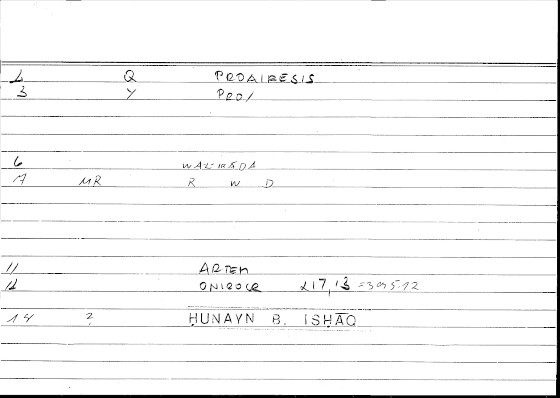 2 Q PROAIRESIS
3 Y PRO/
6 WAL-IRĀDA
7 MR R W D
11 ARTEM
12 ONIROCR 217,13
14 ? ḤUNAYN B. ISḤĀQ